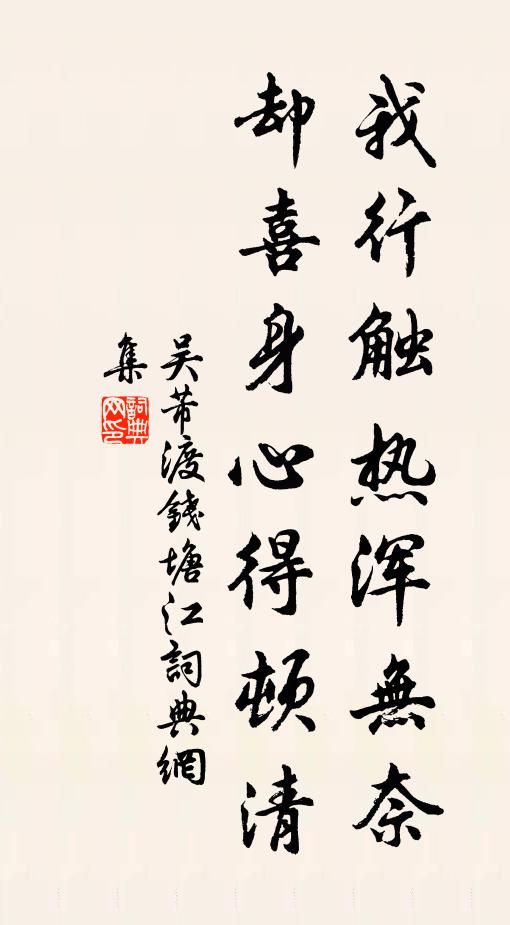 我行触热浑無奈
却喜身心得顿清
吴芾渡錢塘江詞典網
集
詞典网印